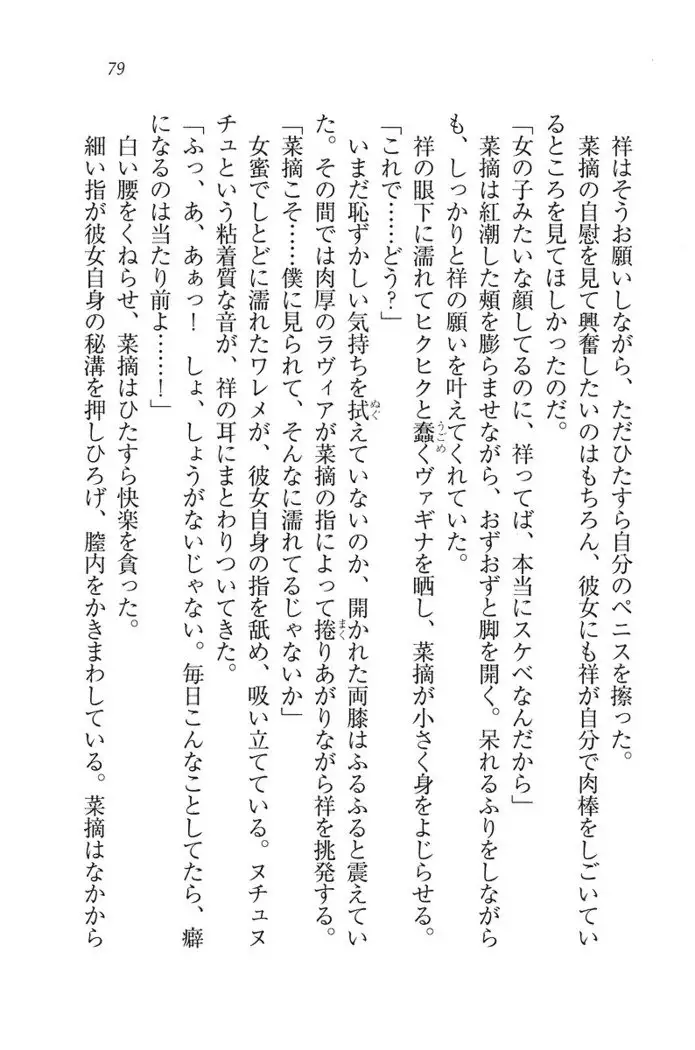 79
祥はそうお願いしながら、ただひたすら自分のペニスを擦った。
菜摘の自慰を見て興奮したいのはもちろん、彼女にも祥が自分で肉棒をしごいてい
るところを見てほしかったのだ。
「女の子みたいな顔してるのに、祥ってば、本当にスケベなんだから」
菜摘は紅潮した頰を膨らませながら、おずおずと脚を開く。呆れるふりをしながら
も、しっかりと祥の願いを叶えてくれていた。
祥の眼下に濡れてヒクヒクと蠢くヴァギナを晒し、菜摘が小さく身をよじらせる。
「これで……どう？」
いまだ恥ずかしい気持ちを拭えていないのか、開かれた両膝はふるふると震えてい
た。その間では肉厚のラヴィアが菜摘の指によって捲りあがりながら祥を挑発する。
「菜摘こそ……僕に見られて、そんなに濡れてるじゃないか」
女蜜でしとどに濡れたワレメが、彼女自身の指を舐め、吸い立てている。ヌチュヌ
チュという粘着質な音が、祥の耳にまとわりついてきた。
「ふっ、あ、あぁっ！　しょ、しょうがないじゃない。毎日こんなことしてたら、癖
になるのは当たり前よ……！」
白い腰をくねらせ、菜摘はひたすら快楽を貪った。
細い指が彼女自身の秘溝を押しひろげ、膣内をかきまわしている。菜摘はなかから